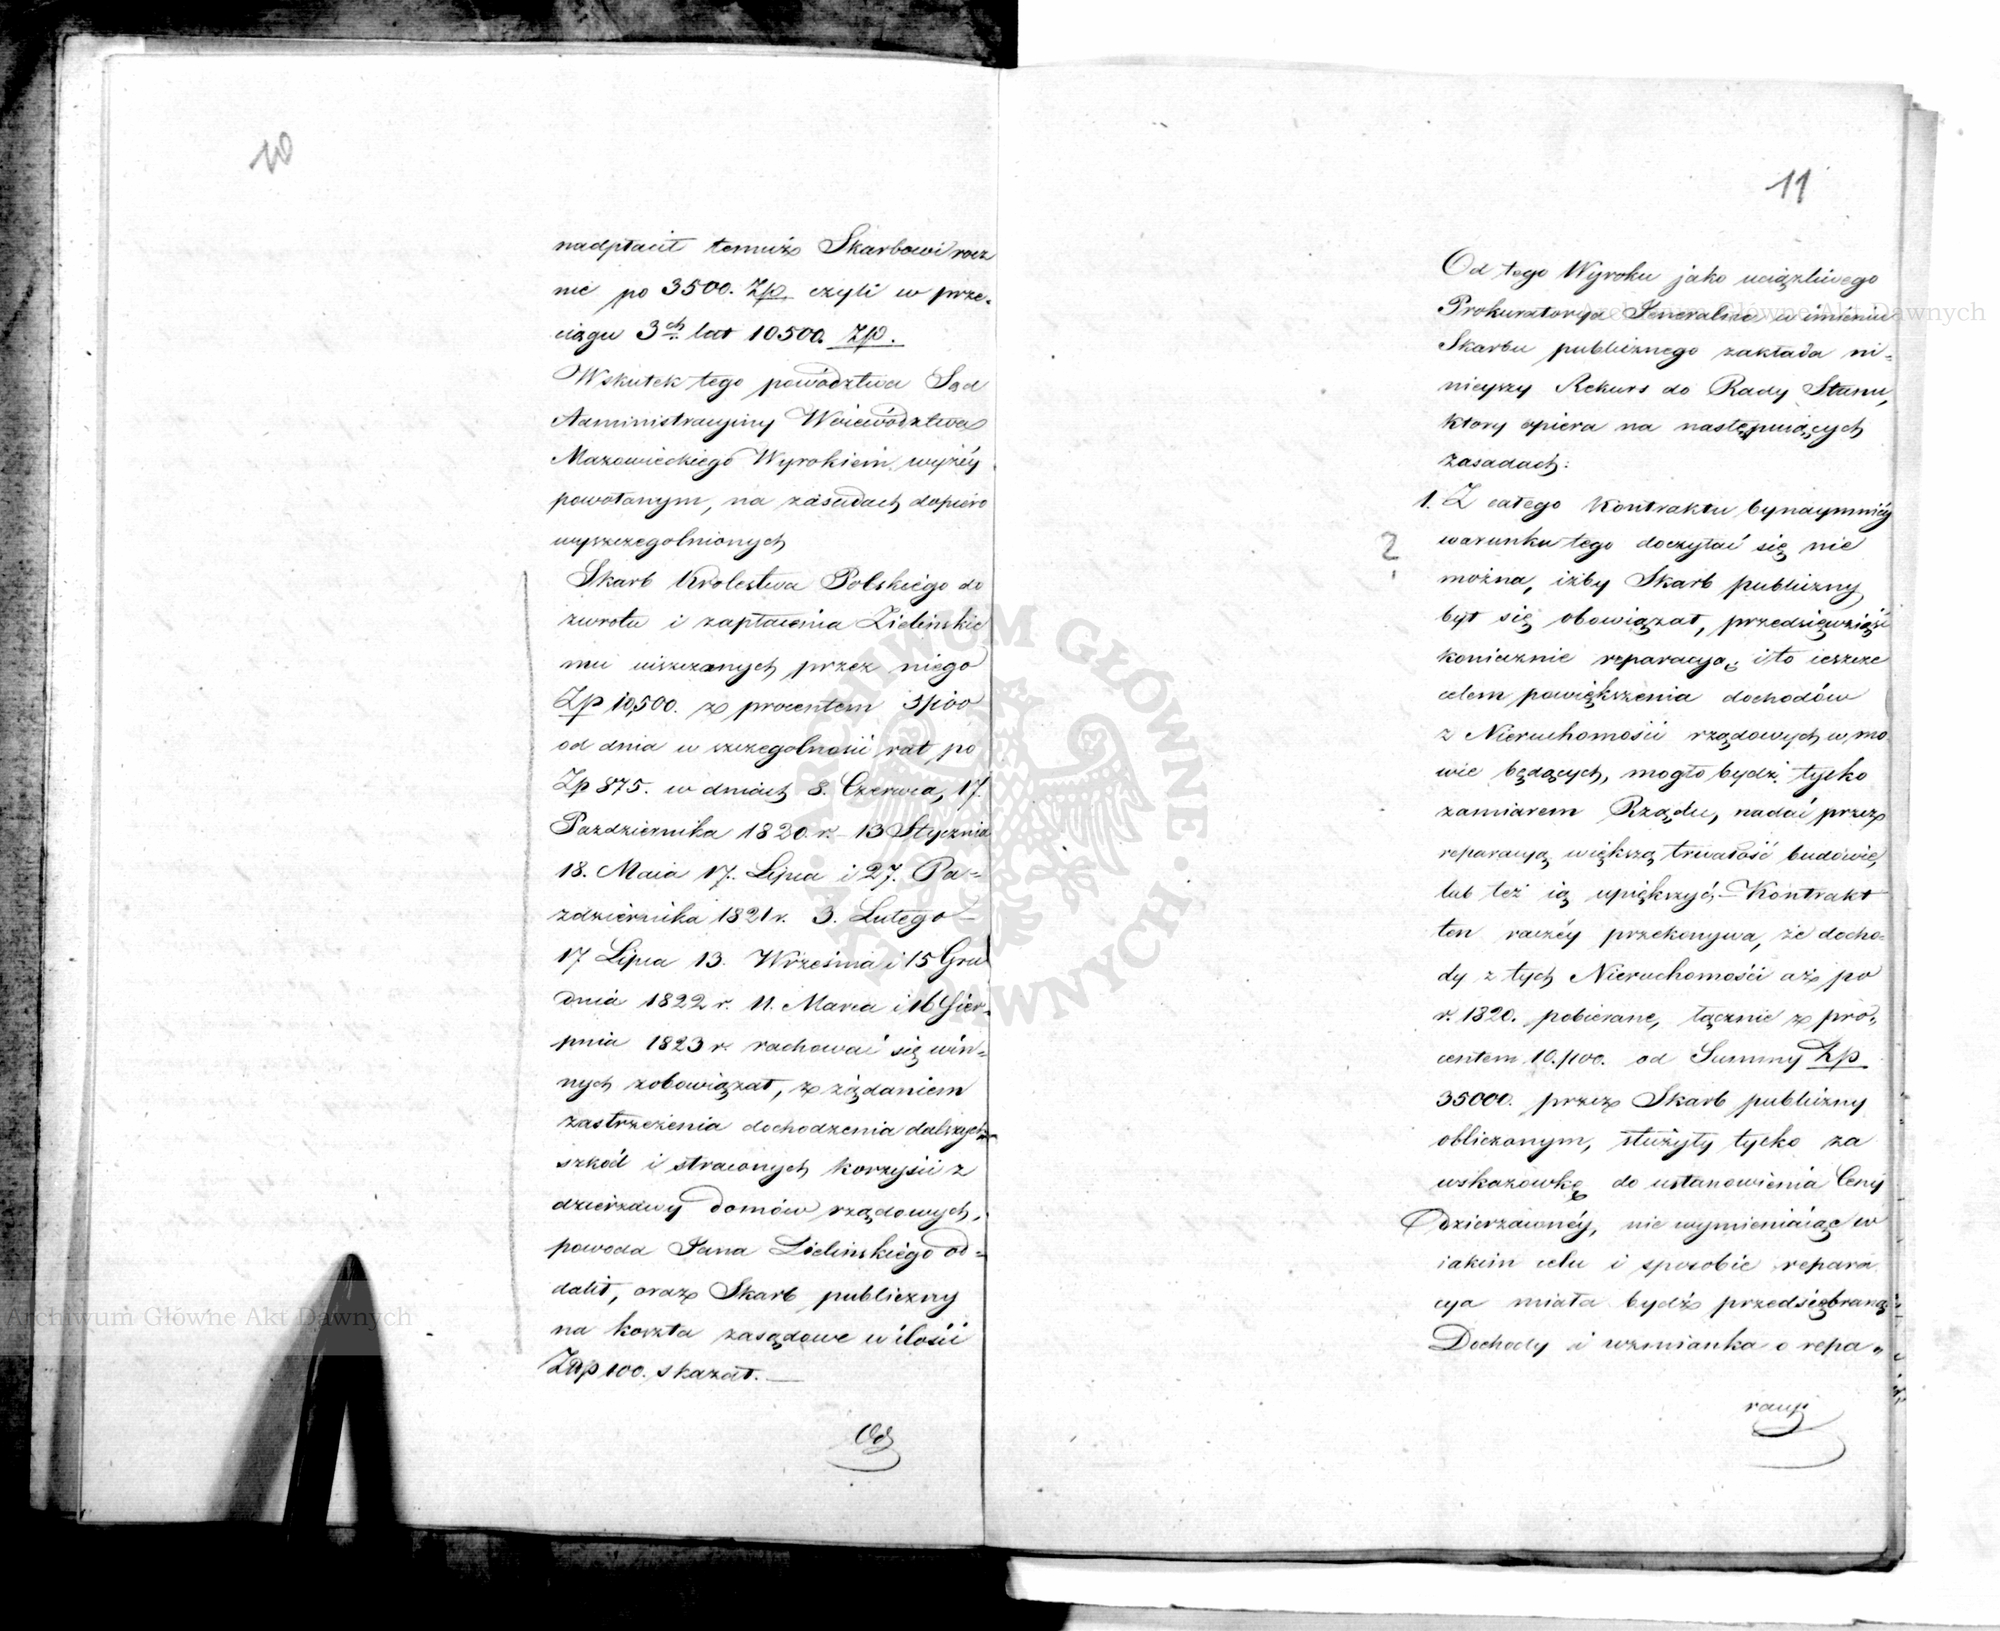 10
nadpłacił temuż Skarbowi rocz
nie po 3500. Zp. czyli w prze-
ciągu 3ch. lat 10500. Zp.
Wskutek tego powództwa Sąd
Administracyiny Woiewództwa
Mazowieckiego Wyrokiem wyżéy
powołanym, na zasadach dopiero
wyszczegolnionych
Skarb Krolestwa Polskiego do
zwrotu i zapłacenia Zielinskie
mu uiszczonych przez niego
Zp 10,500. z procentem 5/100
od dnia w szczegolności rat po
Zp 875. w dniach 8. Czerwca, 17.
Pazdziernika 1820. r. 13 Stycznia
18. Maia 17. Lipca i 27. Pa-
zdziernika 1821 r. 3. Lutego
17 Lipca 13. Września i 15 Gru
dnia 1822 r. 11. Marca i 16 Sier-
pnia 1823 r. rachować się win-
nych zobowiązał, z żądaniem
zastrzeżenia dochodzenia dalszych
szkód i straconych korzyści z
dzierzawy domów rządowych,
powoda Jana Zielinskiego od-
dalił, oraz Skarb publiczny
na koszta zasądowe w ilości
Złp 100. skazał.
Od
11
Od tego Wyroku jako uciążliwego
Prokuratorya Jeneralna w imieniu
Skarbu publicznego zakłada ni-
nieyszy Rekurs do Rady Stanu,
ktory opiera na następuiących
zasadach:
1. Z całego Kontraktu bynaymniéy
? warunku tego doczytać się nie
można, iżby Skarb publiczny
był się obowiązał, przedsięwziąść
koniecznie reparacyą, i to ieszcze
celem powiększenia dochodów
z Nieruchomości rządowych w mo
wie będących, mogło bydź tylko
zamiarem Rządu, nadać przez
reparacyą większą trwałość budowie,
lub też ią upiększyć. Kontrakt
ten raczéy przekonywa, że docho-
dy z tych Nieruchomości aż po
r. 1820. pobierane, łącznie z pro-
centem 10./100. od Summy Zp
35000. przez Skarb publiczny
obliczonym, służyły tylko za
wskazowkę do ustanowienia Ceny
dzierzawnéy, nie wymieniaiąc w
iakim celu i sposobie repara
cya miała bydź przedsiębraną
Dochody i wzmianka o repa-
racyi
Archiwum Główne Akt Dawnych
Archiwum Główne Akt Dawnych
ARCHIWUM GŁÓWNE AKT DAWNYCH